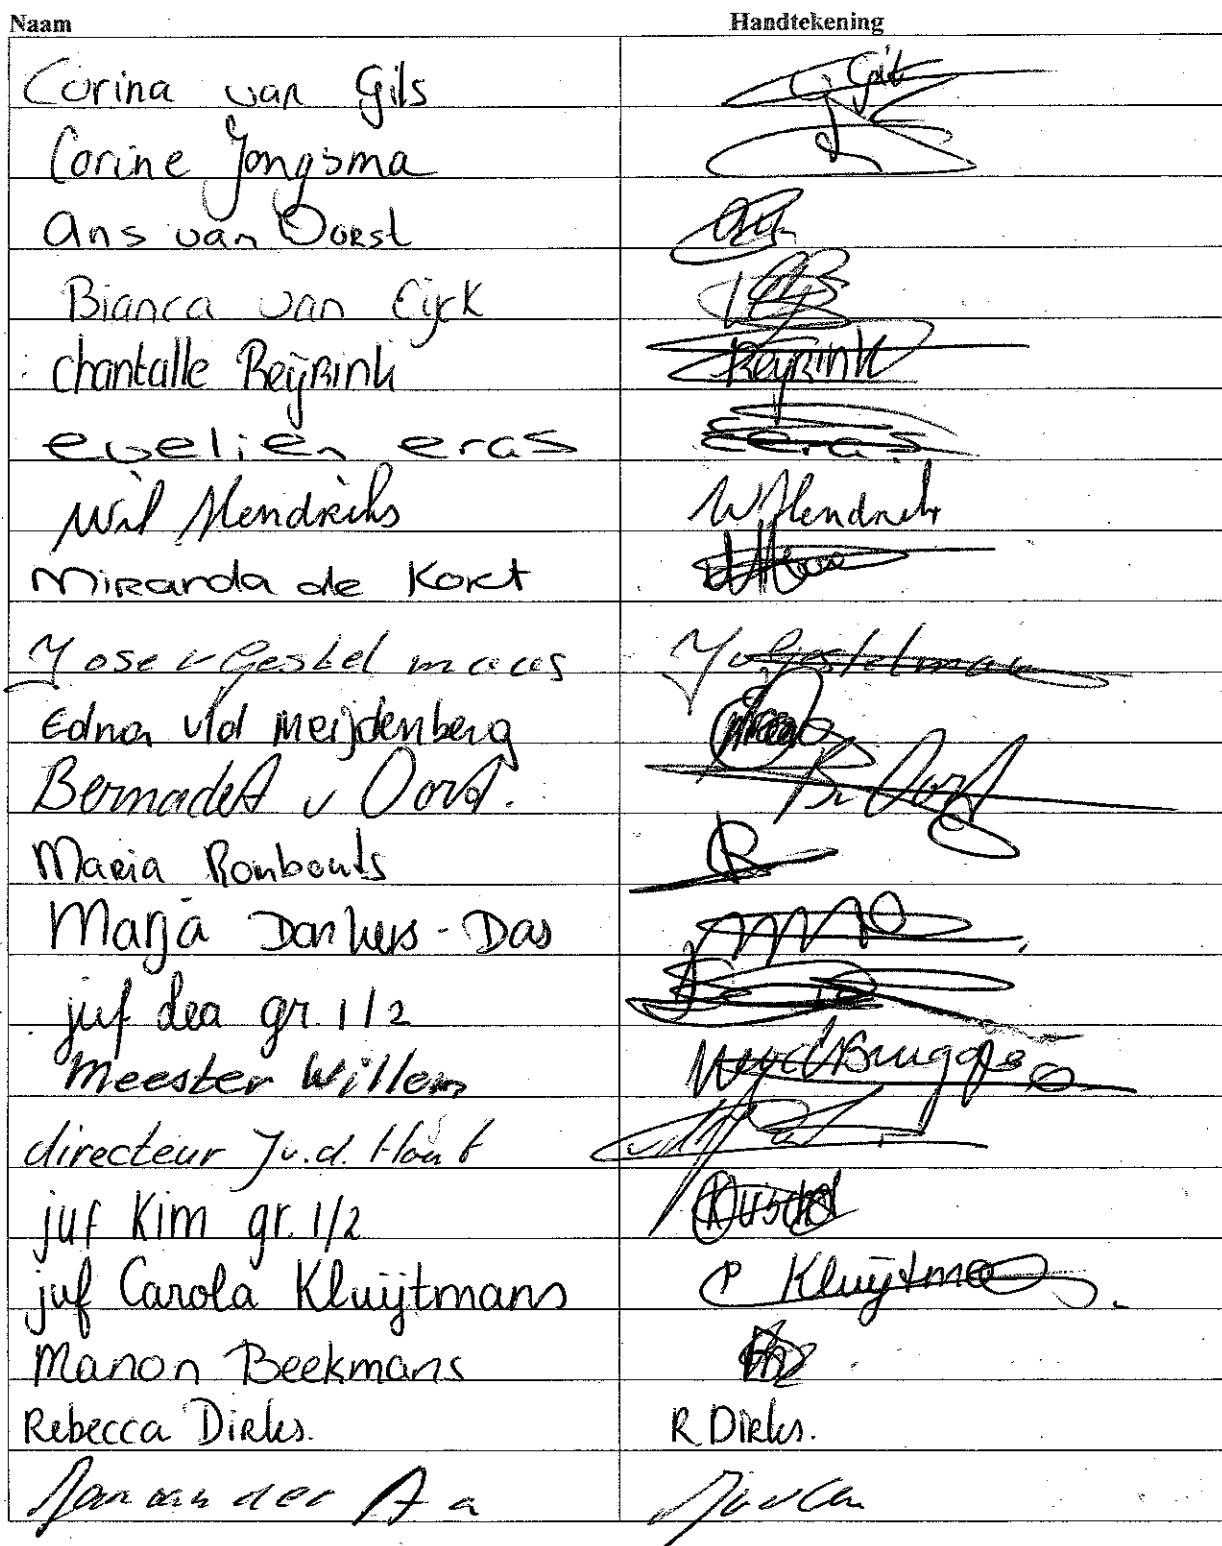 Naam Handtekening
Corina van Gils
Corine Jongsma
Ans van Dorst
Bianca van Eijck
chantalle Reijrink Reijrink
evelien eras eras
Wil Hendriks W Hendriks
Miranda de Kort
Jose v Gestel maas Jv Gestelmaas
Edna v/d Meijdenberg
Bernadet v Oorst. B v Oorst
Maria Rombouts
Marja Dankers - Das
juf dea gr. 1/2
Meester Willem
directeur J v.d. Hout
juf Kim gr. 1/2
juf Carola Kluijtmans C Kluijtmans
Manon Beekmans
Rebecca Dirks. R Dirks.
Jan van der Aa